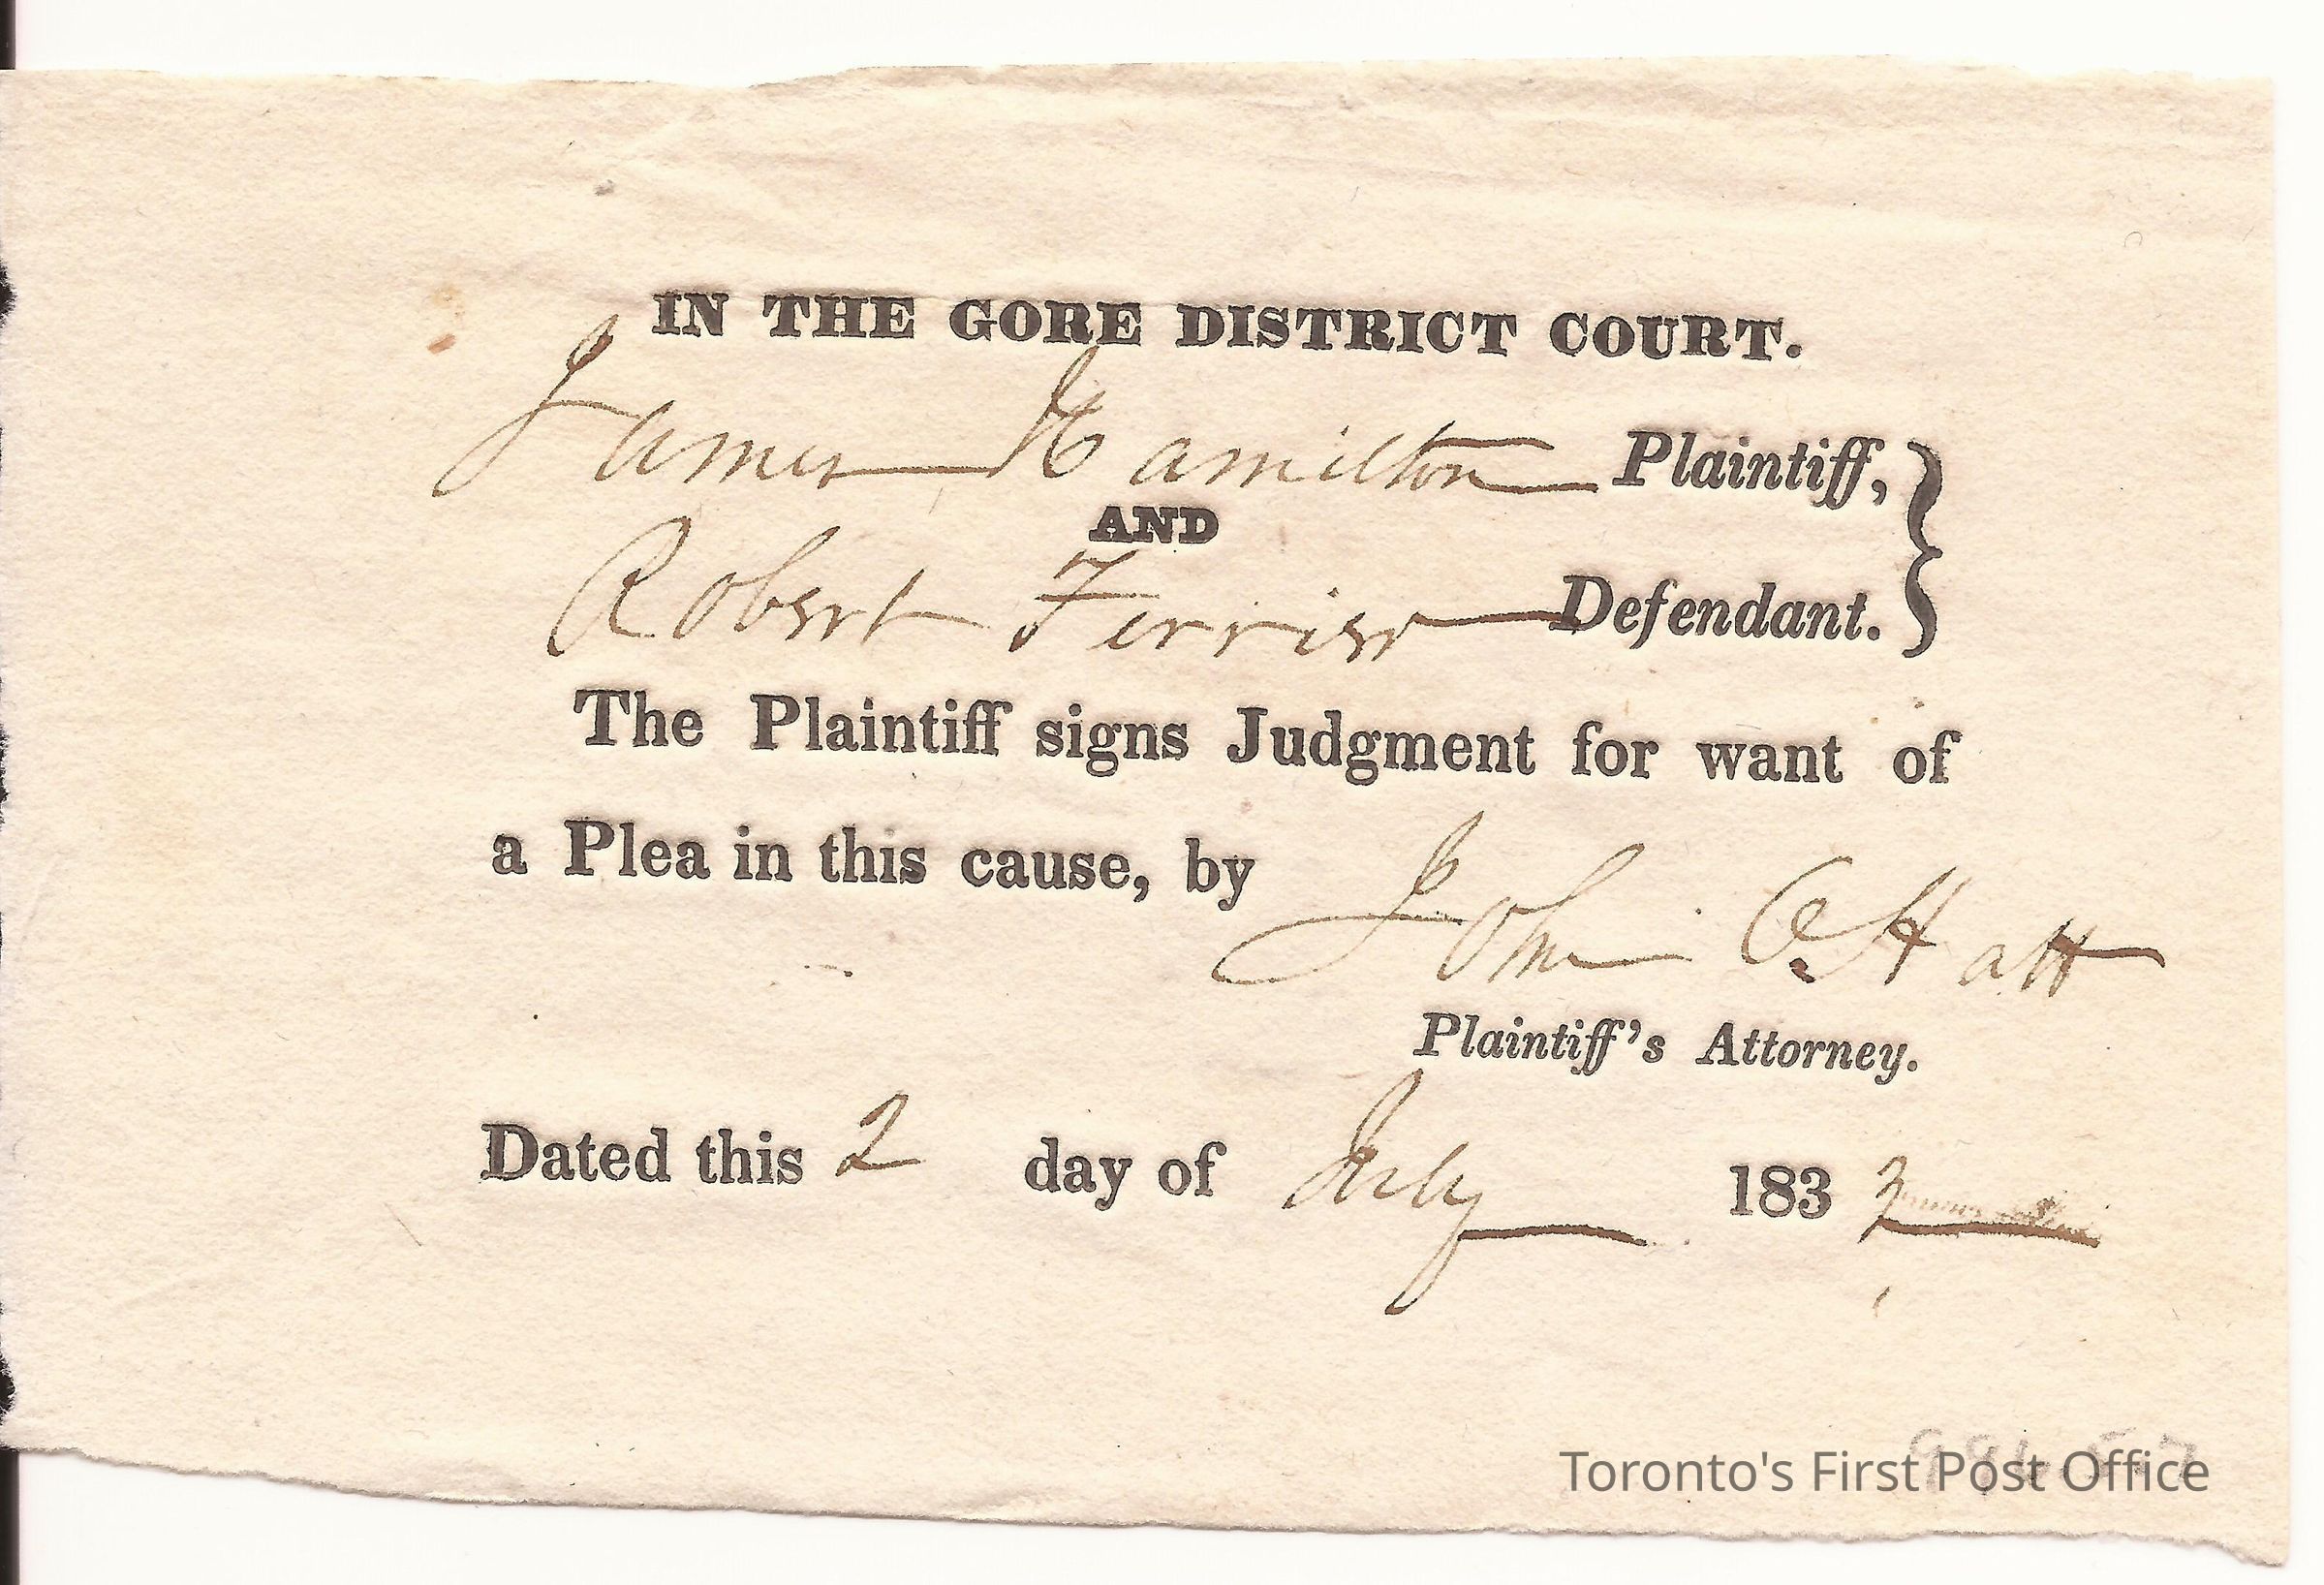 IN THE GORE DISTRICT COURT.
James Hamilton Plaintiff,
AND
Robert Ferrier Defendant.
The Plaintiff signs Judgment for want of
a Plea in this cause, by
John O. Hatt
Plaintiff's Attorney.
Dated this 2 day of July 1833
Toronto's First Post Office